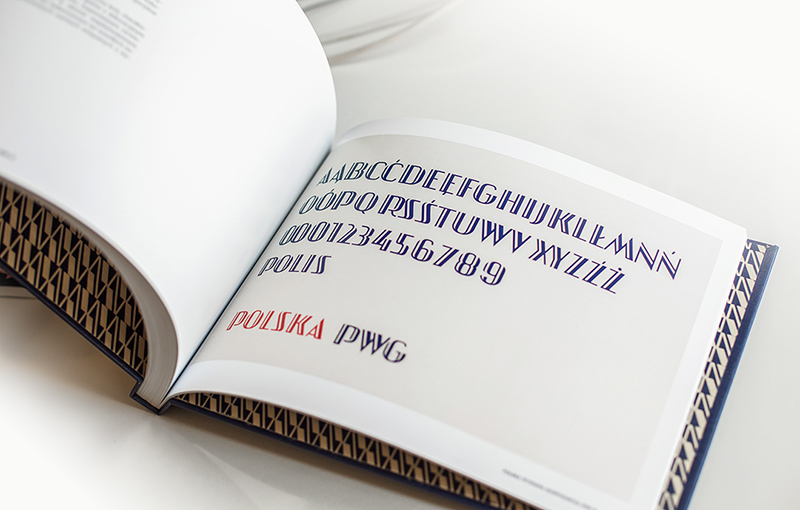 AĄBCĆDEĘFGHIJKLŁMNŃ
OÓPQRSŚTUWVXYZŹŻ
000123456789
POLIS
POLSKA PWG